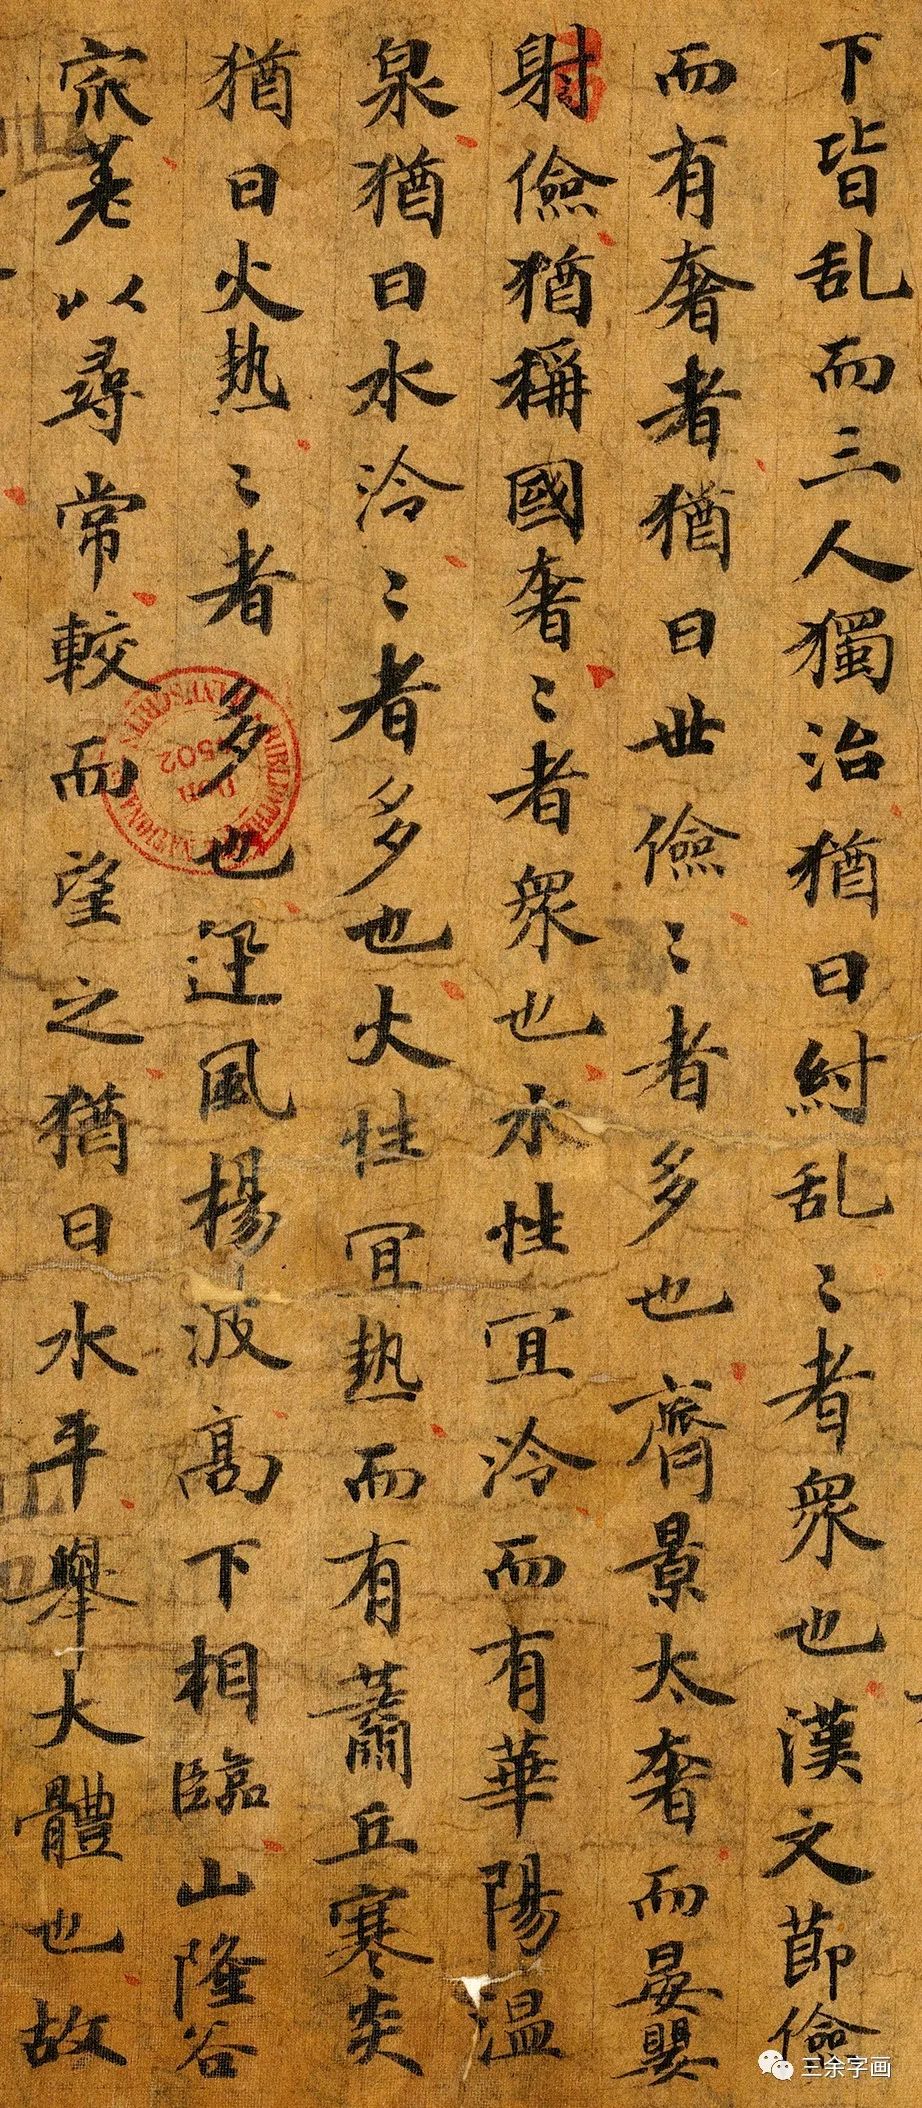 下皆乱而三人獨治猶曰紂乱〻者衆也漢文節儉
而有奢者猶曰世儉〻者多也齊景太奢而晏嬰
躬儉猶稱國奢〻者衆也水性冝冷而有華陽温
泉猶曰水冷〻者多也火性冝热而有蕭丘寒炎
猶曰火热〻者多也迅風楊波高下相臨山隆谷
以尋常較而望之猶曰水平舉大體也故
三余字画